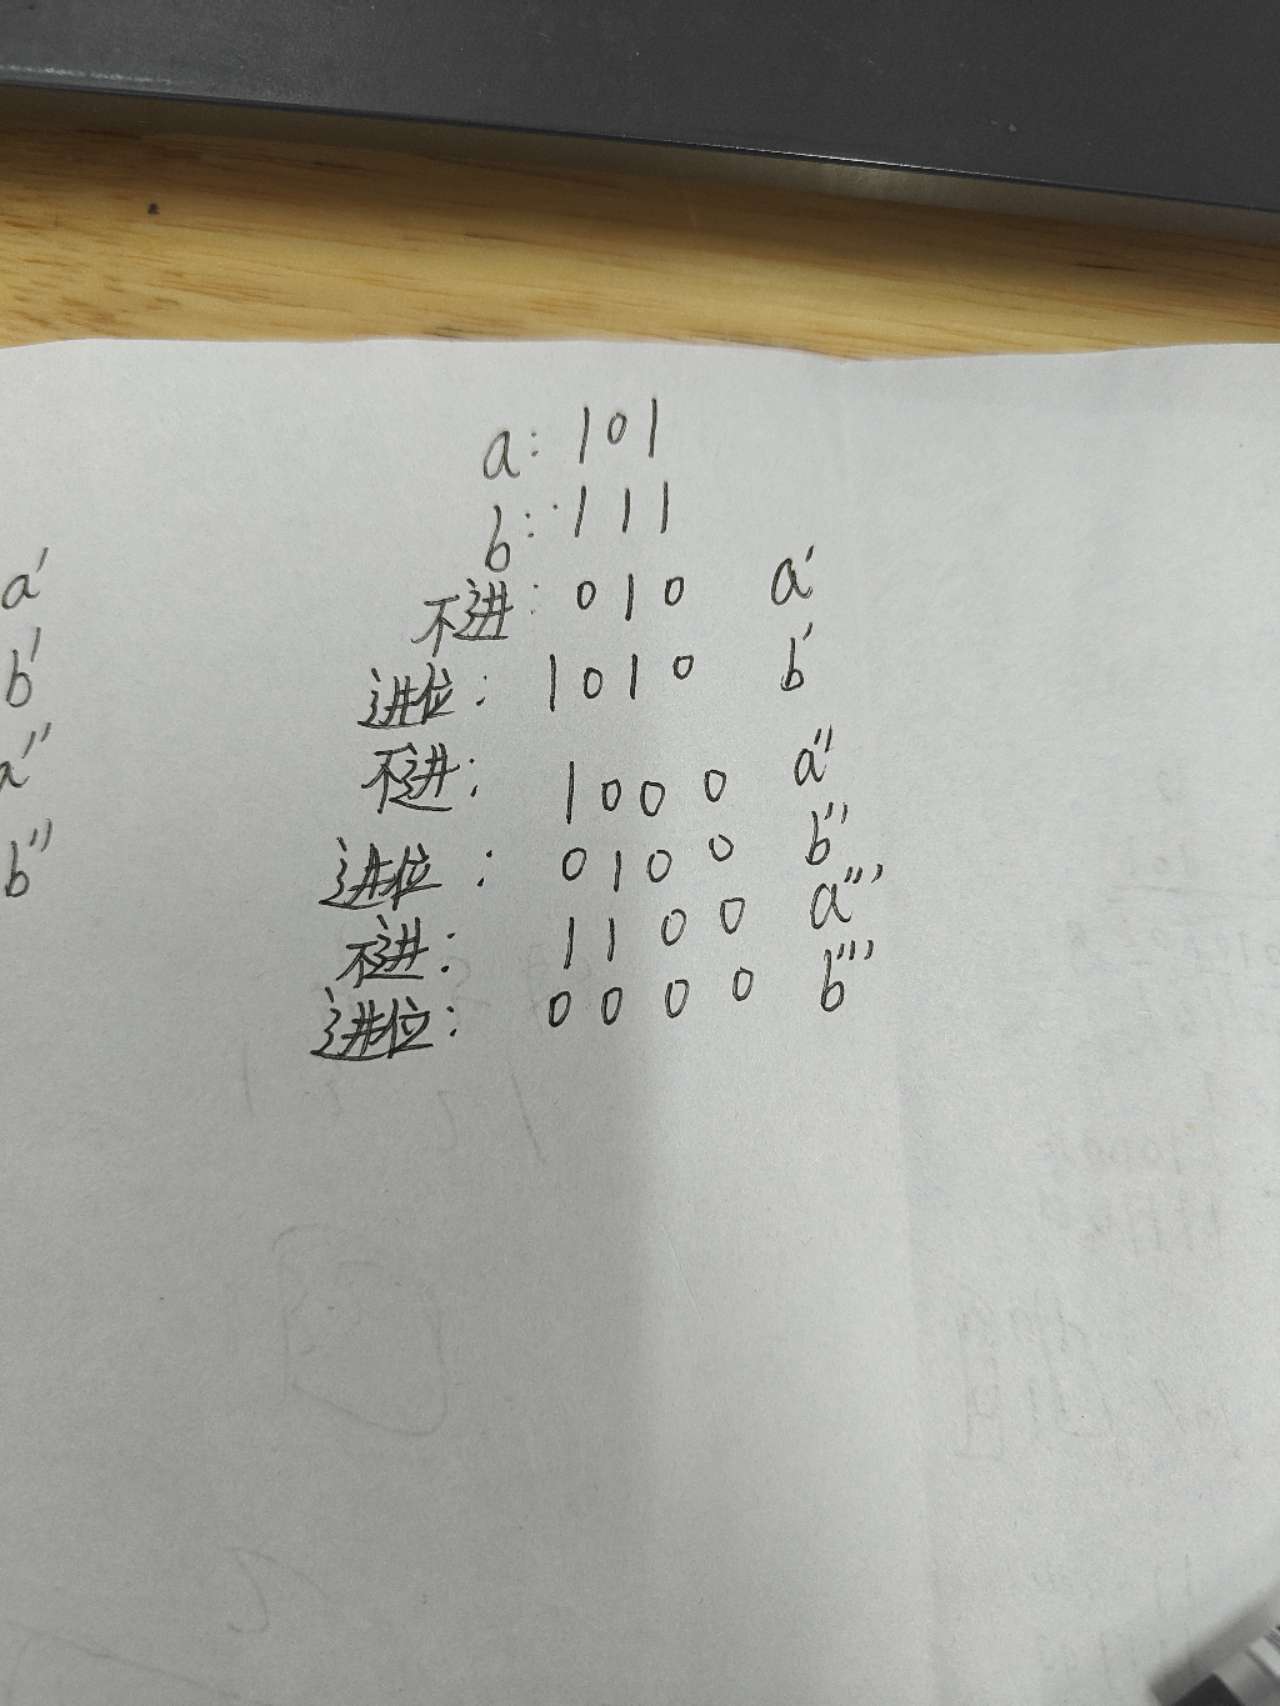 a: 101
b: 111
不进: 010 a'
进位: 1010 b'
不进: 1000 a''
进位: 0100 b''
不进: 1100 a'''
进位: 0000 b'''
a'
b'
a''
b''